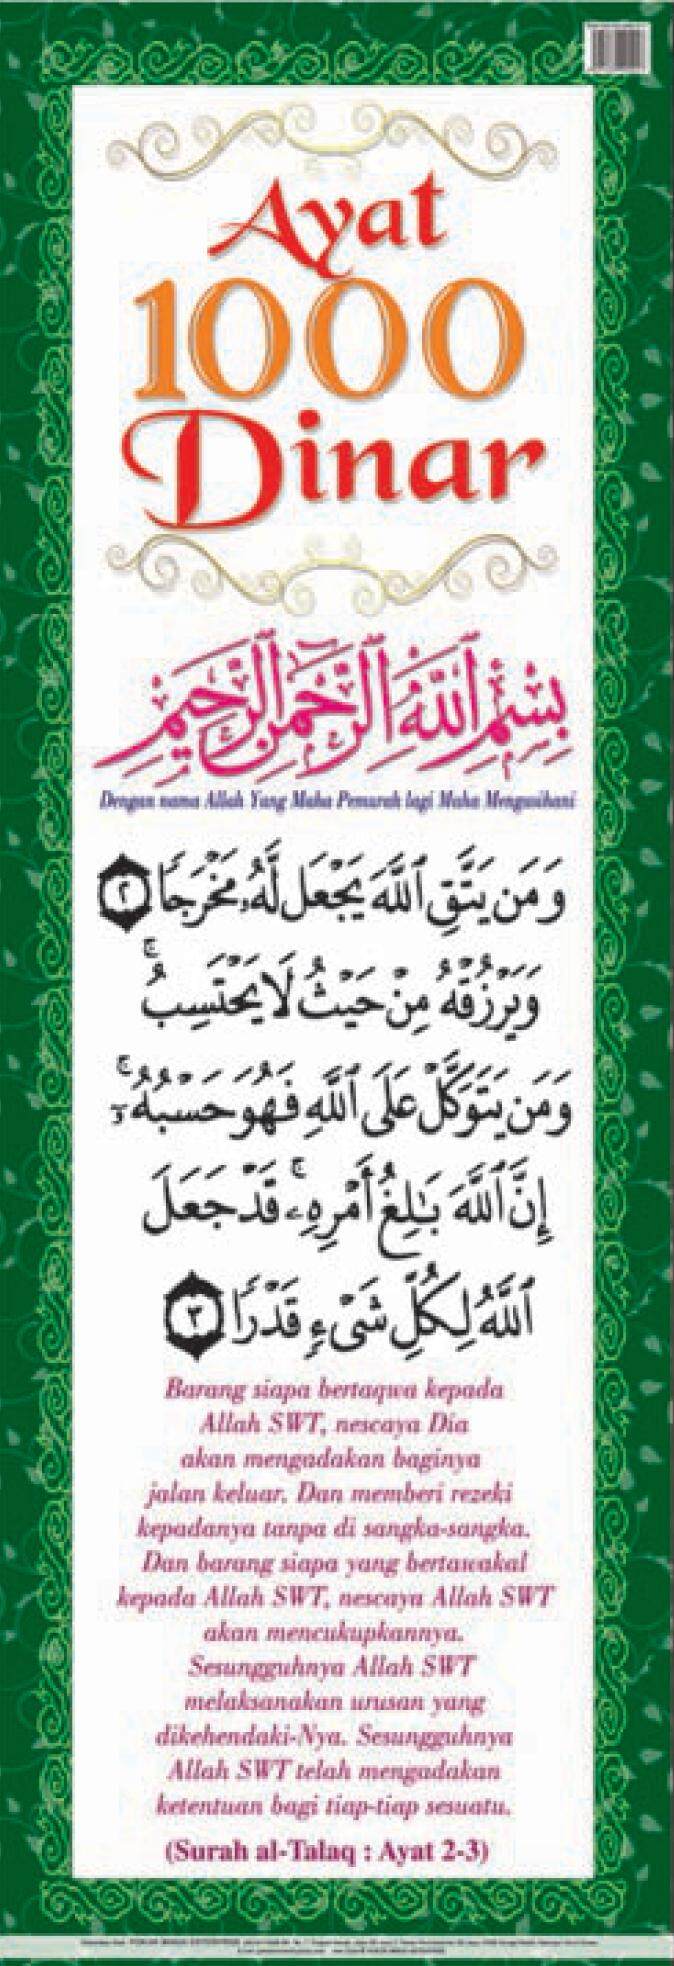 Ayat
1000
Dinar
بِسْمِ اللَّهِ الرَّحْمَٰنِ الرَّحِيمِ
Dengan nama Allah Yang Maha Pemurah lagi Maha Mengasihani
وَمَن يَتَّقِ ٱللَّهَ يَجْعَل لَّهُۥ مَخْرَجًا ٢
وَيَرْزُقْهُ مِنْ حَيْثُ لَا يَحْتَسِبُ ۚ
وَمَن يَتَوَكَّلْ عَلَى ٱللَّهِ فَهُوَ حَسْبُهُۥٓ ۚ
إِنَّ ٱللَّهَ بَٰلِغُ أَمْرِهِۦ ۚ قَدْ جَعَلَ
ٱللَّهُ لِكُلِّ شَىْءٍ قَدْرًا ٣
Barang siapa bertaqwa kepada
Allah SWT, nescaya Dia
akan mengadakan baginya
jalan keluar. Dan memberi rezeki
kepadanya tanpa di sangka-sangka.
Dan barang siapa yang bertawakal
kepada Allah SWT, nescaya Allah SWT
akan mencukupkannya.
Sesungguhnya Allah SWT
melaksanakan urusan yang
dikehendaki-Nya. Sesungguhnya
Allah SWT telah mengadakan
ketentuan bagi tiap-tiap sesuatu.
(Surah al-Talaq : Ayat 2-3)